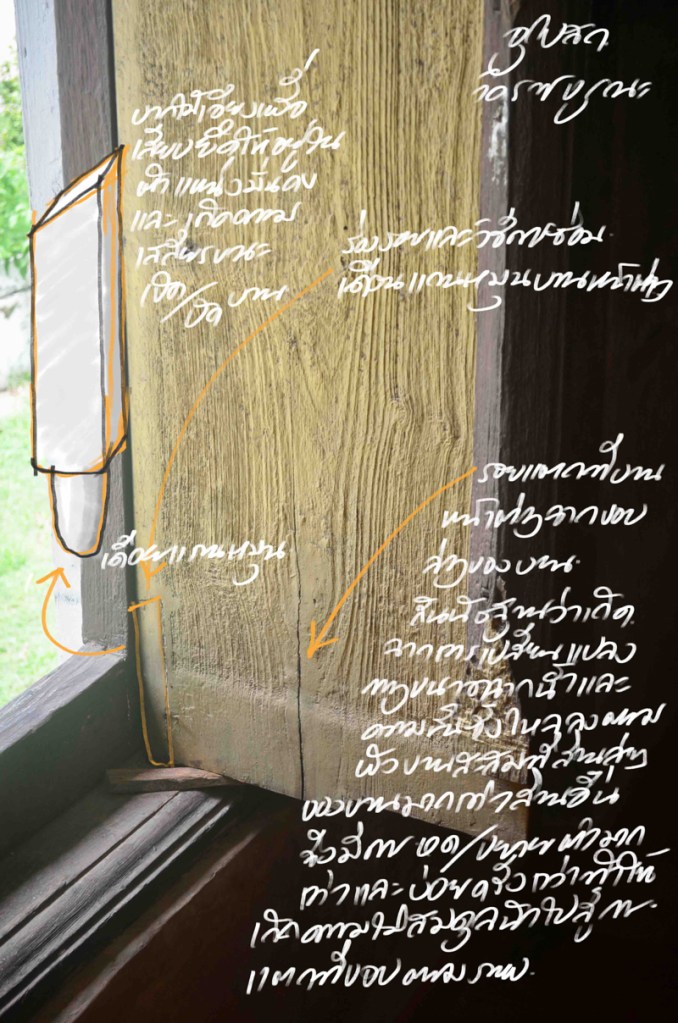 อุโบสถ
วัดราชบูรณะ
บากไม้เอียงเพื่อ
เสียบยึดให้อยู่ใน
ตำแหน่งมั่นคง
และเกิดความ
เสถียรขณะ
เปิด/ปิด บาน
ร่องรอยและวิธีการซ่อม
เดือยแกนหมุนบานหน้าต่าง
เดือยแกนหมุน
รอยแตกที่บาน
หน้าต่างจากขอบ
ล่างของบาน
สันนิษฐานว่าเกิด
จากการเปลี่ยนแปลง
ทางขนาดจากน้ำและ
ความชื้นซึ่งไหลลงตาม
ตัวบานสะสมที่ส่วนล่าง
ของบานมากกว่าส่วนอื่น
จึงมีการหด/ขยายตัวมาก
กว่าและบ่อยครั้งกว่าทำให้
เกิดความไม่สมดุลนำไปสู่การ
แตกที่ขอบตามภาพ.